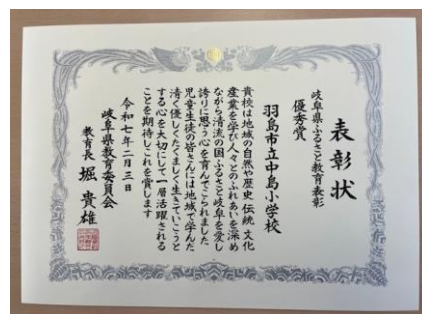 表彰状
岐阜県ふるさと教育表彰
優秀賞
羽島市立中島小学校
貴校は地域の自然や歴史 伝統 文化
産業を学び人々とのふれあいを深め
ながら清流の国ふるさと岐阜を愛し
誇りに思う心を育んでこられました
児童生徒の皆さんには地域で学んだ
清く優しくたくましく生きていこうと
する心を大切にして一層活躍される
ことを期待しこれを賞します
令和七年二月三日
岐阜県教育委員会
教育長 堀 貴雄